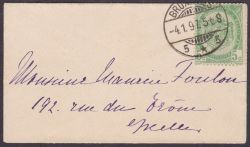 BRU
-4.1.97.5-6 S
5 * 5
5
Monsieur Maurice Foulon
192. rue du Trône
Ixelles